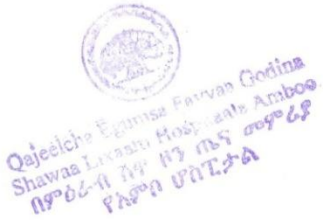 Qajeelcha Eegumsa Fayyaa Godina
Shawaa Lixaatti Hospitaala Amboo
በምዕራብ ሸዋ ዞን ጤና መምሪያ
የአምቦ ሆስፒታል